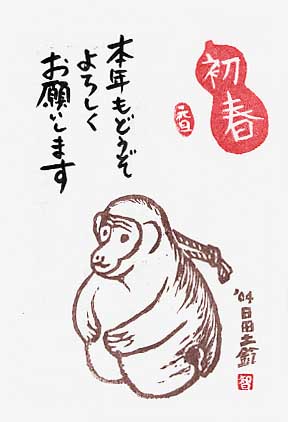 初春
元旦
本年もどうぞ
よろしく
お願いします
'04
日田土鈴
智